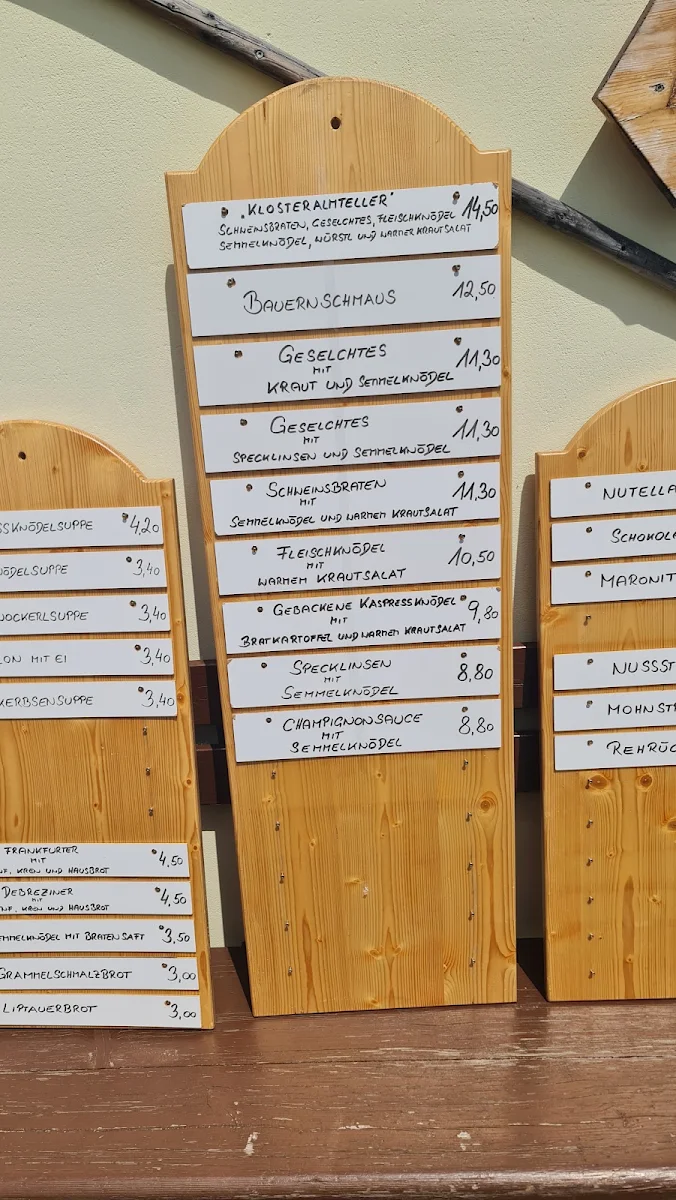 "KLOSTERALMTELLER" 14,50
SCHWEINSBRATEN, GESELCHTES, FLEISCHKNÖDEL
SEMMELKNÖDEL, WÜRSTL UND WARMER KRAUTSALAT
BAUERNSCHMAUS 12,50
GESELCHTES 11,30
MIT
KRAUT UND SEMMELKNÖDEL
GESELCHTES 11,30
MIT
SPECKLINSEN UND SEMMELKNÖDEL
SCHWEINSBRATEN 11,30
MIT
SEMMELKNÖDEL UND WARMEN KRAUTSALAT
FLEISCHKNÖDEL 10,50
MIT
WARMEN KRAUTSALAT
GEBACKENE KASPRESSKNÖDEL 9,80
MIT
BRATKARTOFFEL UND WARMEN KRAUTSALAT
SPECKLINSEN 8,80
MIT
SEMMELKNÖDEL
CHAMPIGNONSAUCE 8,80
MIT
SEMMELKNÖDEL
SSKNÖDELSUPPE 4,20
ÖDELSUPPE 3,40
OCKERLSUPPE 3,40
LON MIT EI 3,40
KERBSENSUPPE 3,40
FRANKFURTER 4,50
MIT
NF, KREN UND HAUSBROT
DEBREZINER 4,50
MIT
NF, KREN UND HAUSBROT
EMMELKNÖDEL MIT BRATENSAFT 3,50
GRAMMELSCHMALZBROT 3,00
LIPTAUERBROT 3,00
NUTELLA
SCHOKOL
MARONIT
NUSSST
MOHNST
REHRÜC